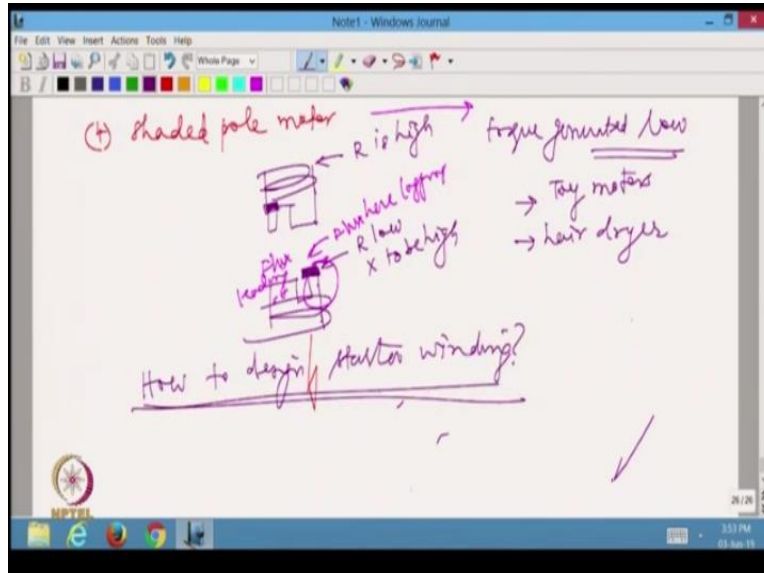 Note1 - Windows Journal
File Edit View Insert Actions Tools Help
Whole Page
B I
(4) Shaded pole motor
R is high
torque generated low
→ Toy motors
→ hair dryer
flux here lagging
R low
X to be high
flux leading
How to design stator winding?
NPTEL
26/26
3:53 PM
03-Jun-19